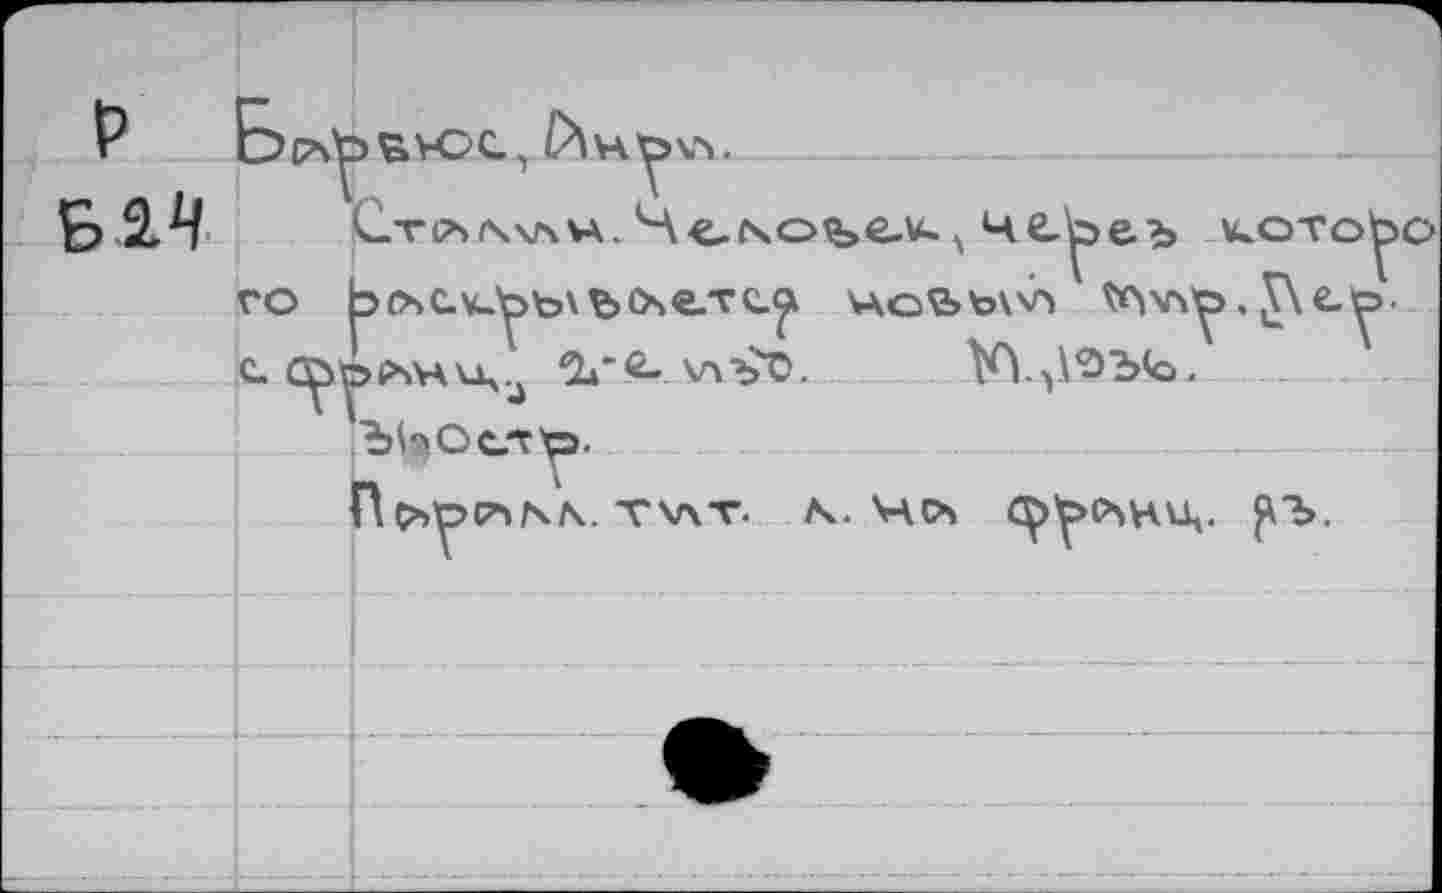 Р Барбюс, Анри.
Б24 Сталин. Человек, через которо
го раскрывается новый мир. Пер.
с франц., 2-е изд. М., 1936.
316 стр.
Паралл. тит. л. на франц. яз.